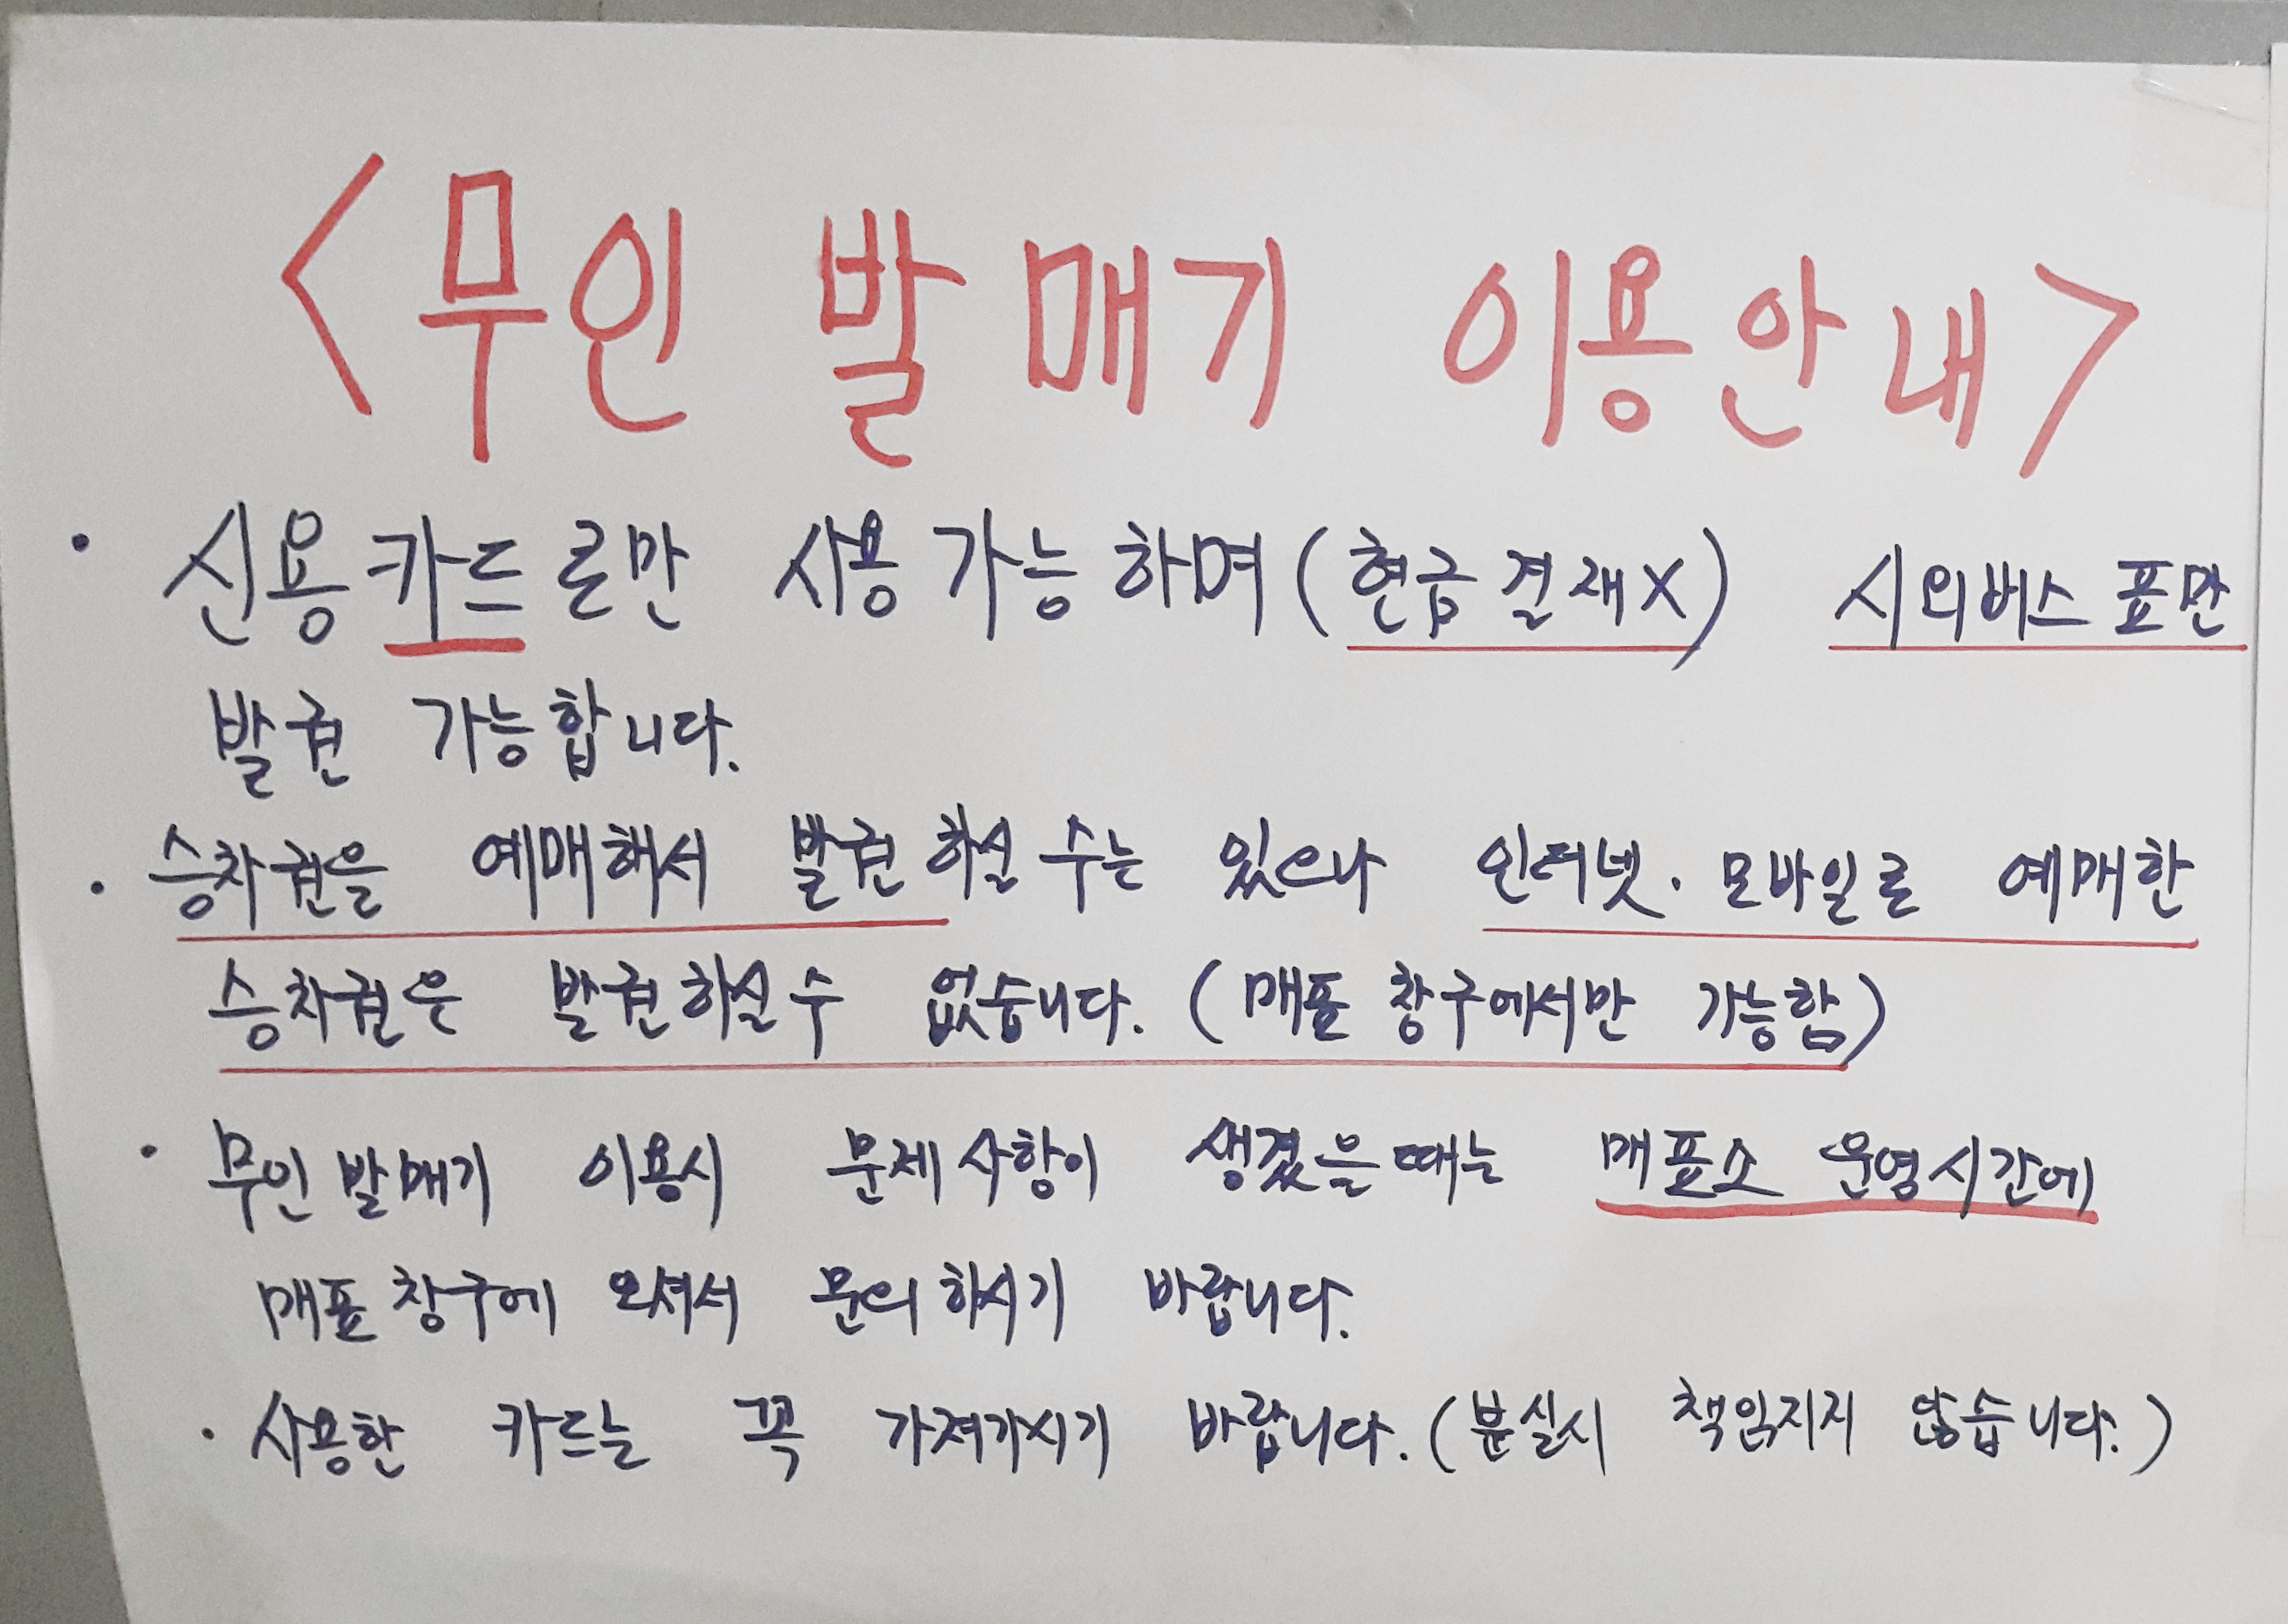 <무인 발매기 이용안내>
· 신용카드로만 사용가능하며 (현금결재X) 시외버스표만
발권 가능합니다.
· 승차권을 예매해서 발권하실 수는 있으나 인터넷·모바일로 예매한
승차권은 발권하실수 없습니다. (매표 창구에서만 가능함)
· 무인발매기 이용시 문제사항이 생겼을때는 매표소 운영시간에
매표창구에 오셔서 문의하시기 바랍니다.
· 사용한 카드는 꼭 가져가시기 바랍니다. (분실시 책임지지 않습니다.)